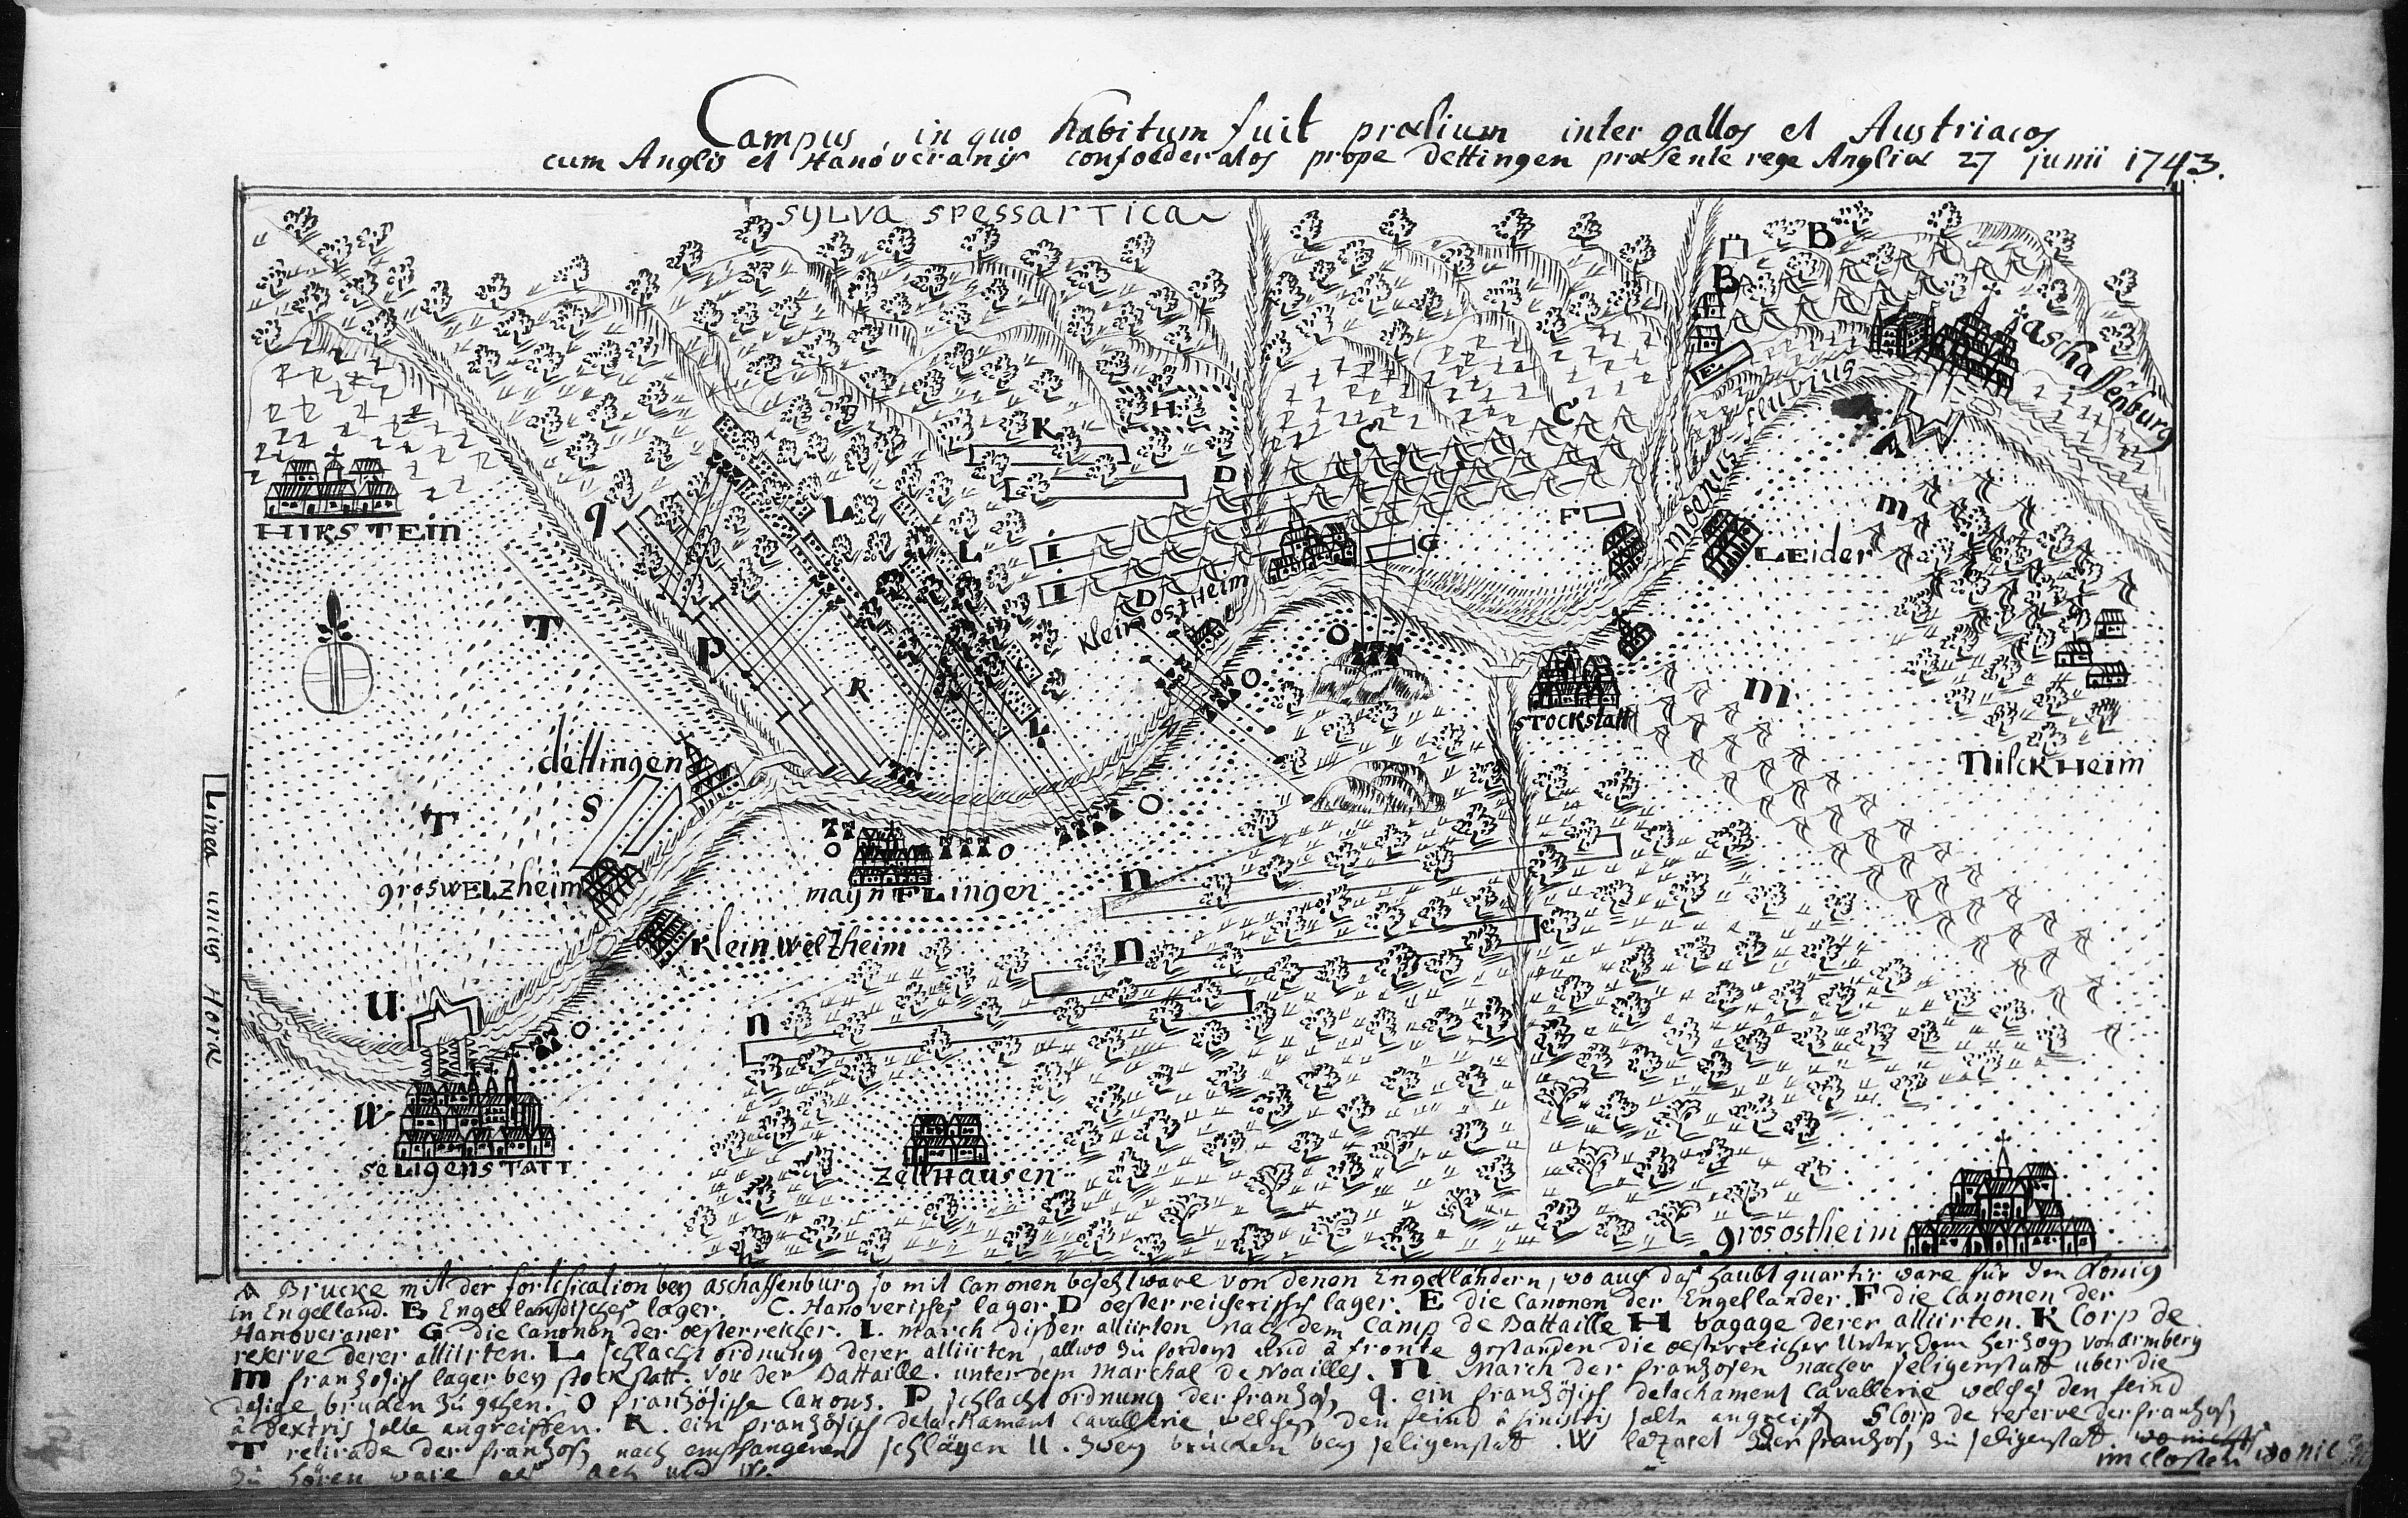 Campus, in quo habitum fuit prælium inter gallos et Austriacos
cum Anglis et Hanoveranis confoederatos prope dettingen præsente rege Angliæ 27 junii 1743.
SYLVA SPESSARTICA
B
B
aschaffenburg
E
fluvius
moenus
A
H
K
C
C
D
q
L
HIRSTEin
F
L
I
G
LEider
m
I
D
Klein ostHeim
T
P
O
R
O
m
STOCKstatt
L
dettingen
Nilckheim
S
O
T
O
O
groswELzheim
maynFLingen
n
Klein welzheim
n
Linea unius Horæ
U
n
O
W
seLigensTATT
zellHausen
gros ostheim
A Brucke mit der fortification bey aschaffenburg so mit Canonen besetzt ware von denen Engelländern, wo auch das haubtquartir ware für den König
in Engelland. B Engelländisches lager. C. Hanoverisches lager. D oesterreicherisch lager. E die Canonen der Engellander. F die Canonen der
Hanoveraner G die Canonen der oesterreicher. I. march disser alliirten nach dem Camp de Battaille H bagage derer alliirten. K Corp de
reserve derer alliirten. L schlacht ordnung derer alliirten, allwo zu forderst und à fronte gestanden die oesterreicher unter dem herzog von Armberg
m franzosisch lager bey stockstatt. vor der Battaille. unter dem Marchal de Noailles. n March der franzosen nacher seligenstatt uber die
dasige brucken zu gehen. O französische Canons. P schlacht ordnung der franzosen q. ein französisch detachament Cavallerie welches den feind
à dextris solte angreiffen. R. ein französisch detachament Cavallerie welches den feind à sinistris solte angreiffen S Corp de reserve der franzosen
T retirade der franzosen nach empfangenen schlägen U. zwey brucken bey seligenstatt. W lazaret der franzosen zu seligenstatt
im closter wo nic
zu hören ware als ach und